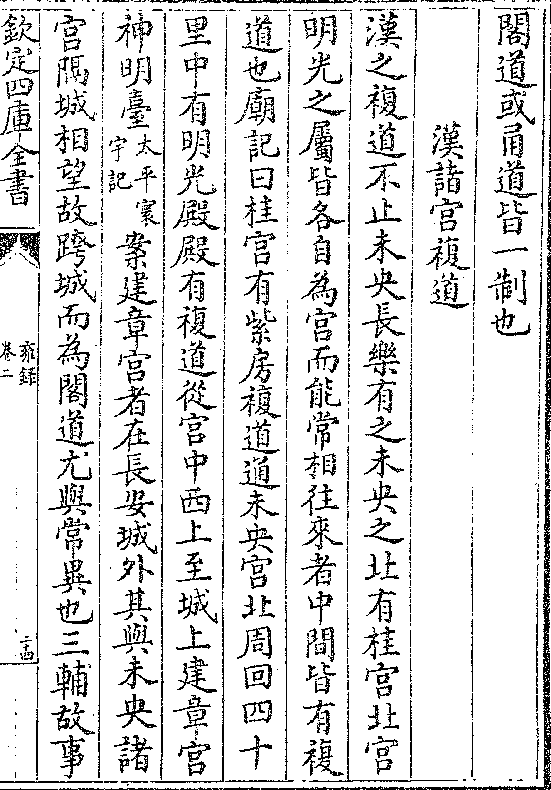 閣道或甬道皆一制也
漢諸宮複道
漢之複道不止未央長樂有之未央之北有桂宮北宮
明光之屬皆各自為宮而能常相往來者中間皆有複
道也廟記曰桂宮有紫房複道通未央宮北周回四十
里中有明光殿殿有複道從宮中西上至城上建章宮
神明臺太平寰宇記案建章宮者在長安城外其與未央諸
宮隔城相望故跨城而為閣道尤與常異也三輔故事
欽定四庫全書
雍録
卷二
二十四